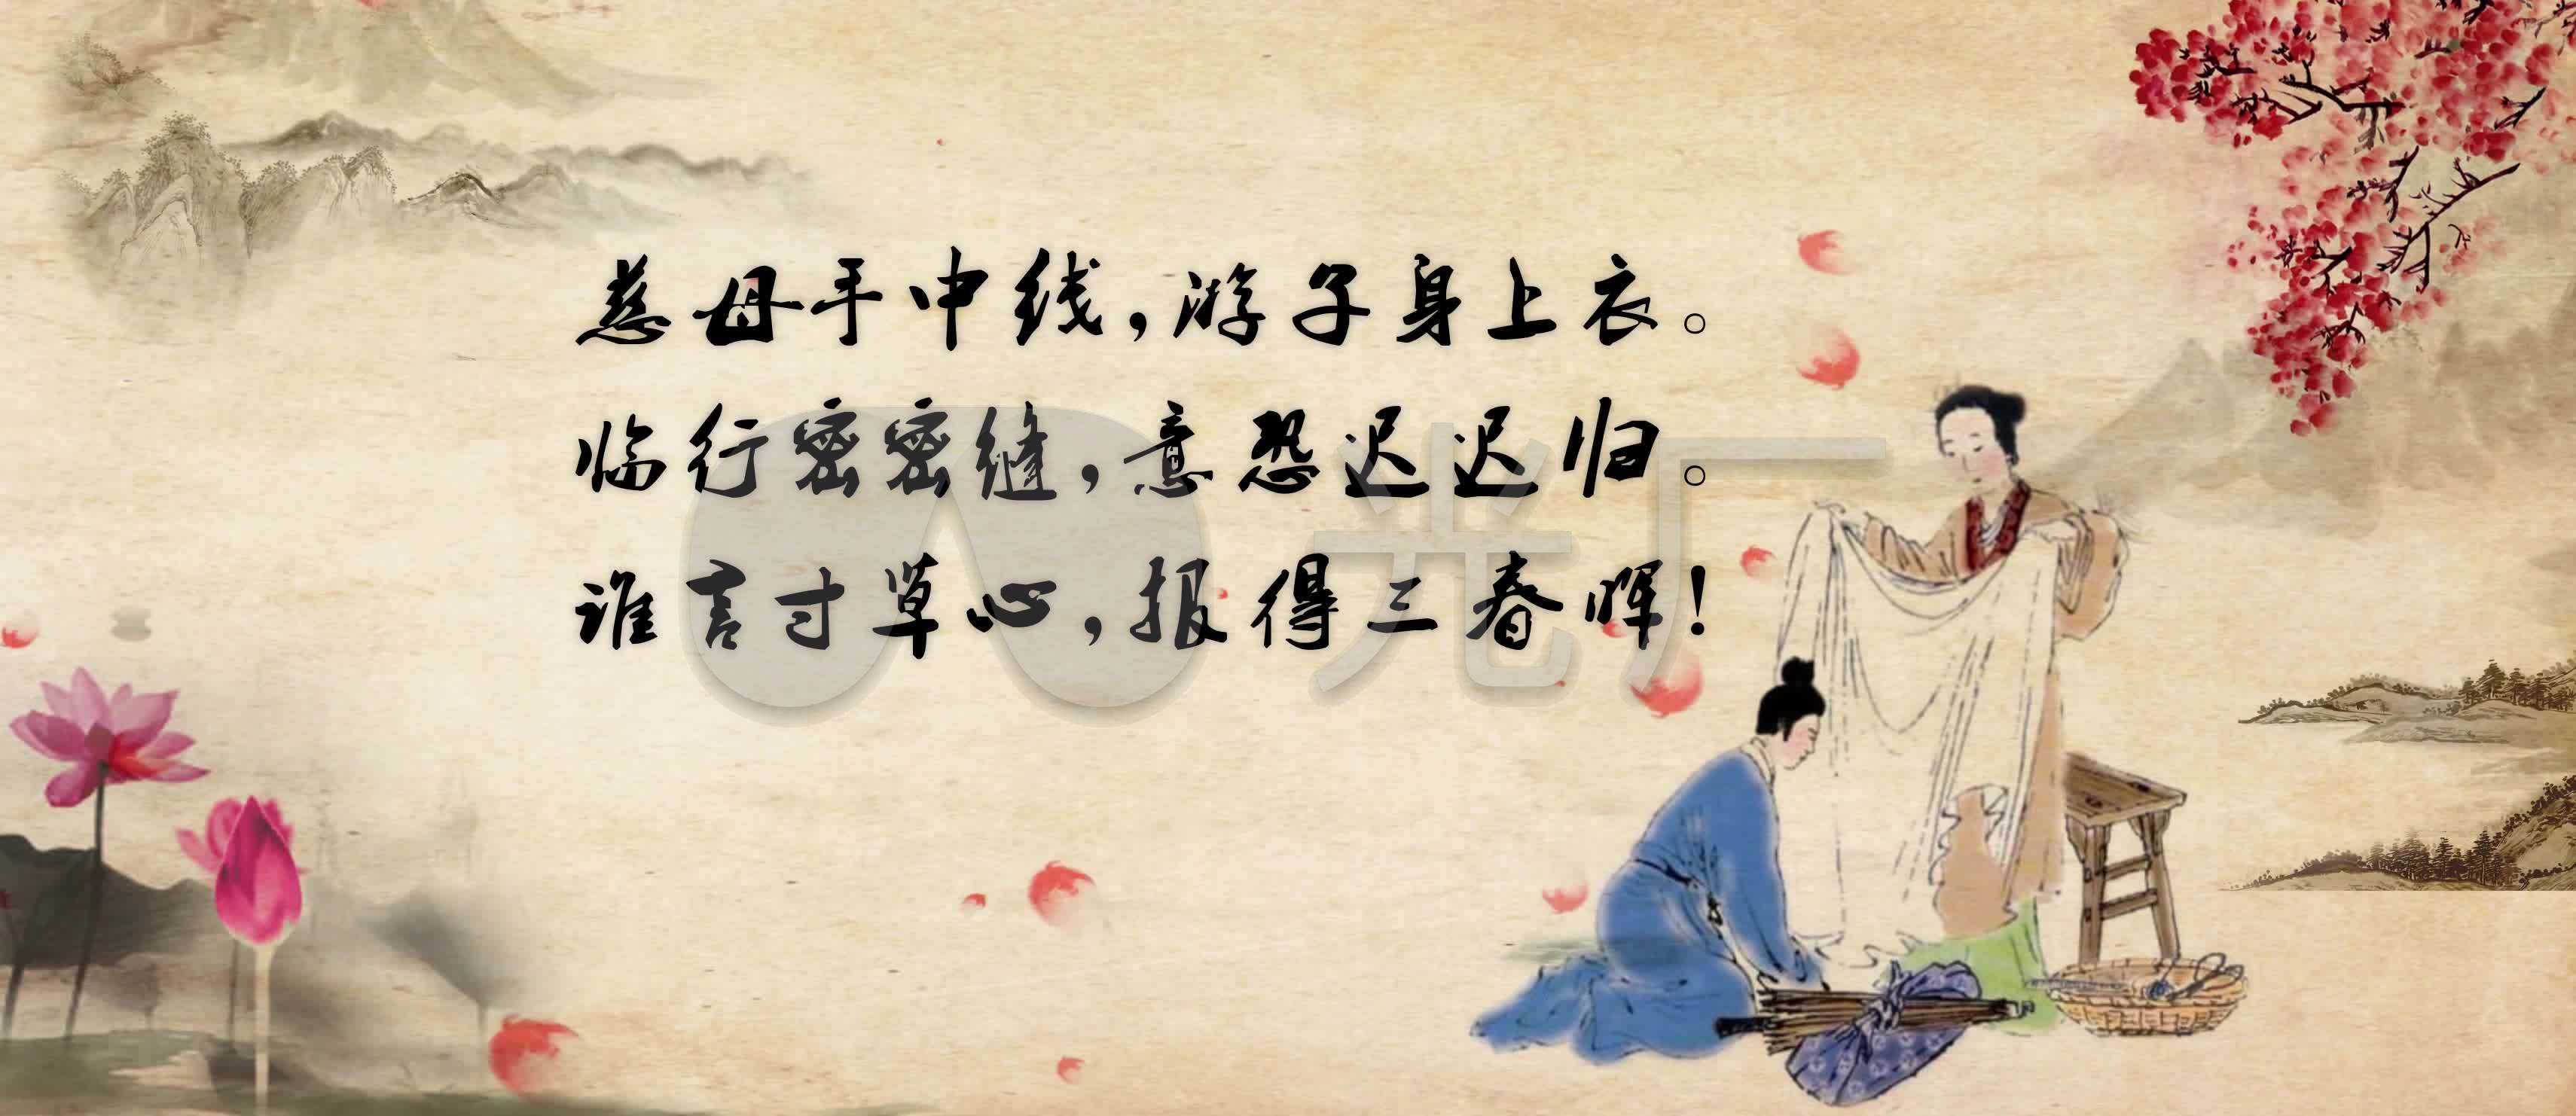 慈母手中线，游子身上衣。
临行密密缝，意恐迟迟归。
谁言寸草心，报得三春晖！
光厂